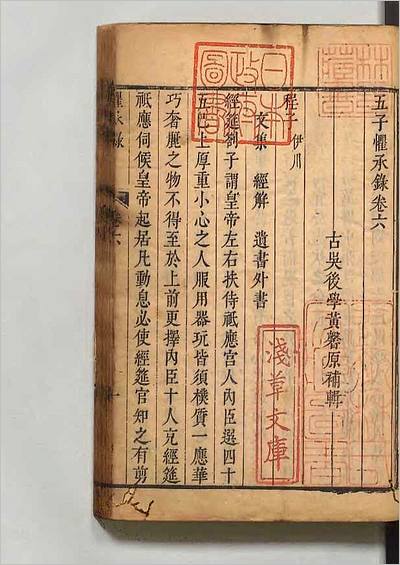 五子懼承錄卷六
古吳後學黃罄原補輯
程子 伊川
文集 經解 遺書外書
經筵劄子謂皇帝左右扶侍祗應宮人內臣選四十
五已上厚重小心之人服用器玩皆須樸質一應華
巧奢麗之物不得至於上前更擇內臣十人充經筵
祗應伺候皇帝起居凡動息必使經筵官知之有剪
懼承錄
卷六
日本
政府
圖書
淺草文庫